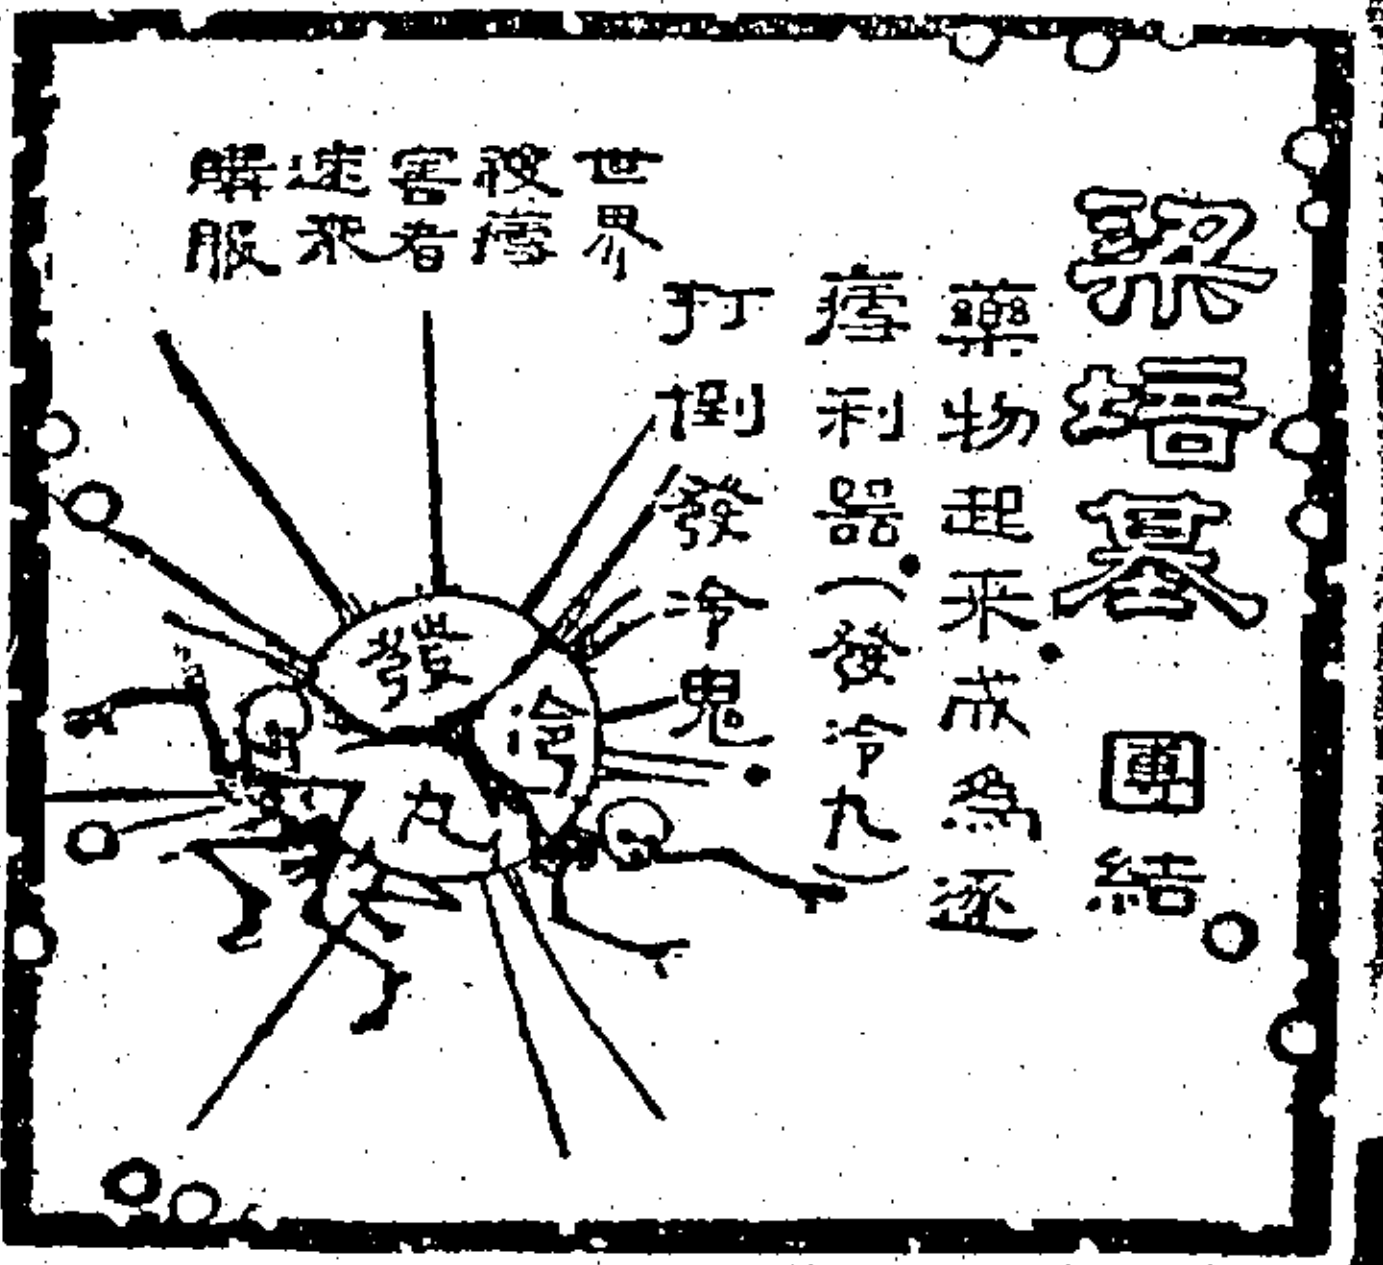 梁培基 團結
藥物起来成為逐
瘧利器（發冷丸）
打倒發冷鬼
世界
被瘧
害者
速來
購服
發
冷
丸